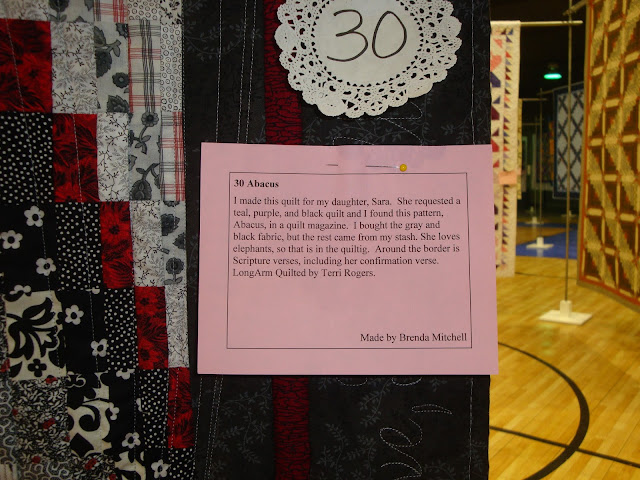 30
30 Abacus
I made this quilt for my daughter, Sara. She requested a
teal, purple, and black quilt and I found this pattern,
Abacus, in a quilt magazine. I bought the gray and
black fabric, but the rest came from my stash. She loves
elephants, so that is in the quiltig. Around the border is
Scripture verses, including her confirmation verse.
LongArm Quilted by Terri Rogers.
Made by Brenda Mitchell